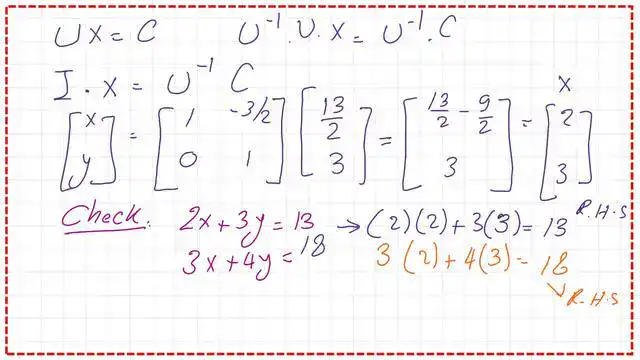 UX = C U⁻¹.U.X = U⁻¹.C
I.X = U⁻¹ C
[x y] = [1 -3/2 0 1] [13/2 3] = [13/2 - 9/2 3] = X [2 3]
Check: 2x+3y=13 → (2)(2)+3(3)=13 R.H.S
3x+4y=18 3(2)+4(3)=18
R.H.S